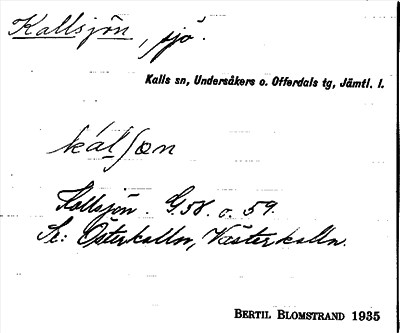 Kallsjön, sjö.
Kalls sn, Undersåkers o. Offerdals tg, Jämtl. l.
kálʃœn
Kallsjön. G.58. o. 59.
Se: Österkalln, Västerkalln.
BERTIL BLOMSTRAND 1935